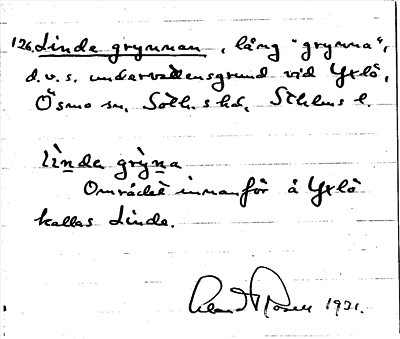 126. Linde grynnan, lång "grynna",
d.v.s. undervattensgrund vid Yxlö,
Ösmo sn, Soth. shd, Sthlms l.
lìnde grỳna
Området innanför å Yxlö
kallas Linde.
1921.